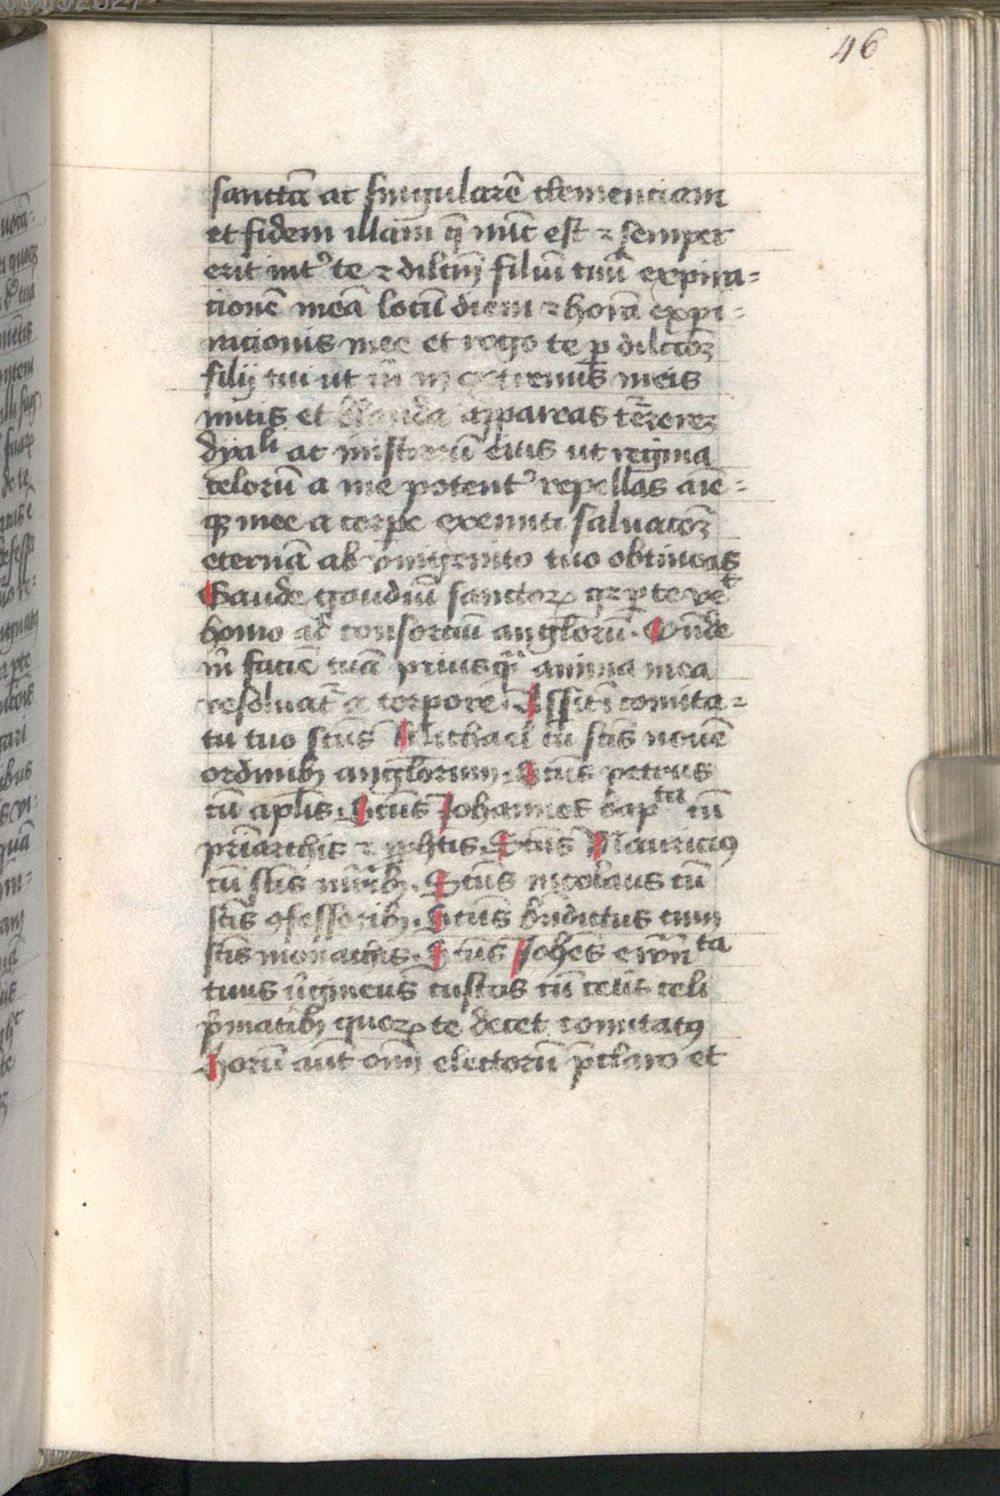 46
sanctã ac singularẽ clemenciam
et fidem illam q̃ nũc est ⁊ semper
erit int᷒ te ⁊ dilcm̃ filiũ tuũ expira=
cionẽ meã locũ diem ⁊ horã expi=
racionis mee et rogo te ꝑ dilccõꝫ
filij tui ut in extremis meis
mitis et blanda appareas terrorẽ
dyabli ac mistrorũ eius ut regina
celorũ a me potent᷒ repellas aie=
qꝫ mee a corpe exeunti saluacõꝫ
eternã ab vnigenito tuo obtineas
Gaude gaudiũ sanctoꝝ qꝛ ꝑ te ve᷒t
homo ad consorciũ angl̃orũ. Oñde
m̃ faciẽ tuã priusq̃ anima mea
resoluat᷒ a corpore. Assit ĩ comita-
tu tuo sctũs Michael cũ sc̃is nouẽ
ordinibꝫ angl̃orum. Sctũs petrus
cũ apl̃is. Sctũs Johannes bapᵗᵃ cũ
priãrchis ⁊ ꝓphtis. Sctũs Mauriciꝰ
cũ sc̃is mr̃ibꝫ. Sctũs nicolaus cũ
sc̃is ꝯfessoribꝫ. Sctũs bñdictus cum
sc̃is monachis. Sctũs Johẽs ewñᵗᵃ
tuus v̓gineus custos cũ celis celi
p̃matibꝫ quoꝝ te decet comitatꝰ
Horũ aut̃ om̃ electorũ p̃claro et